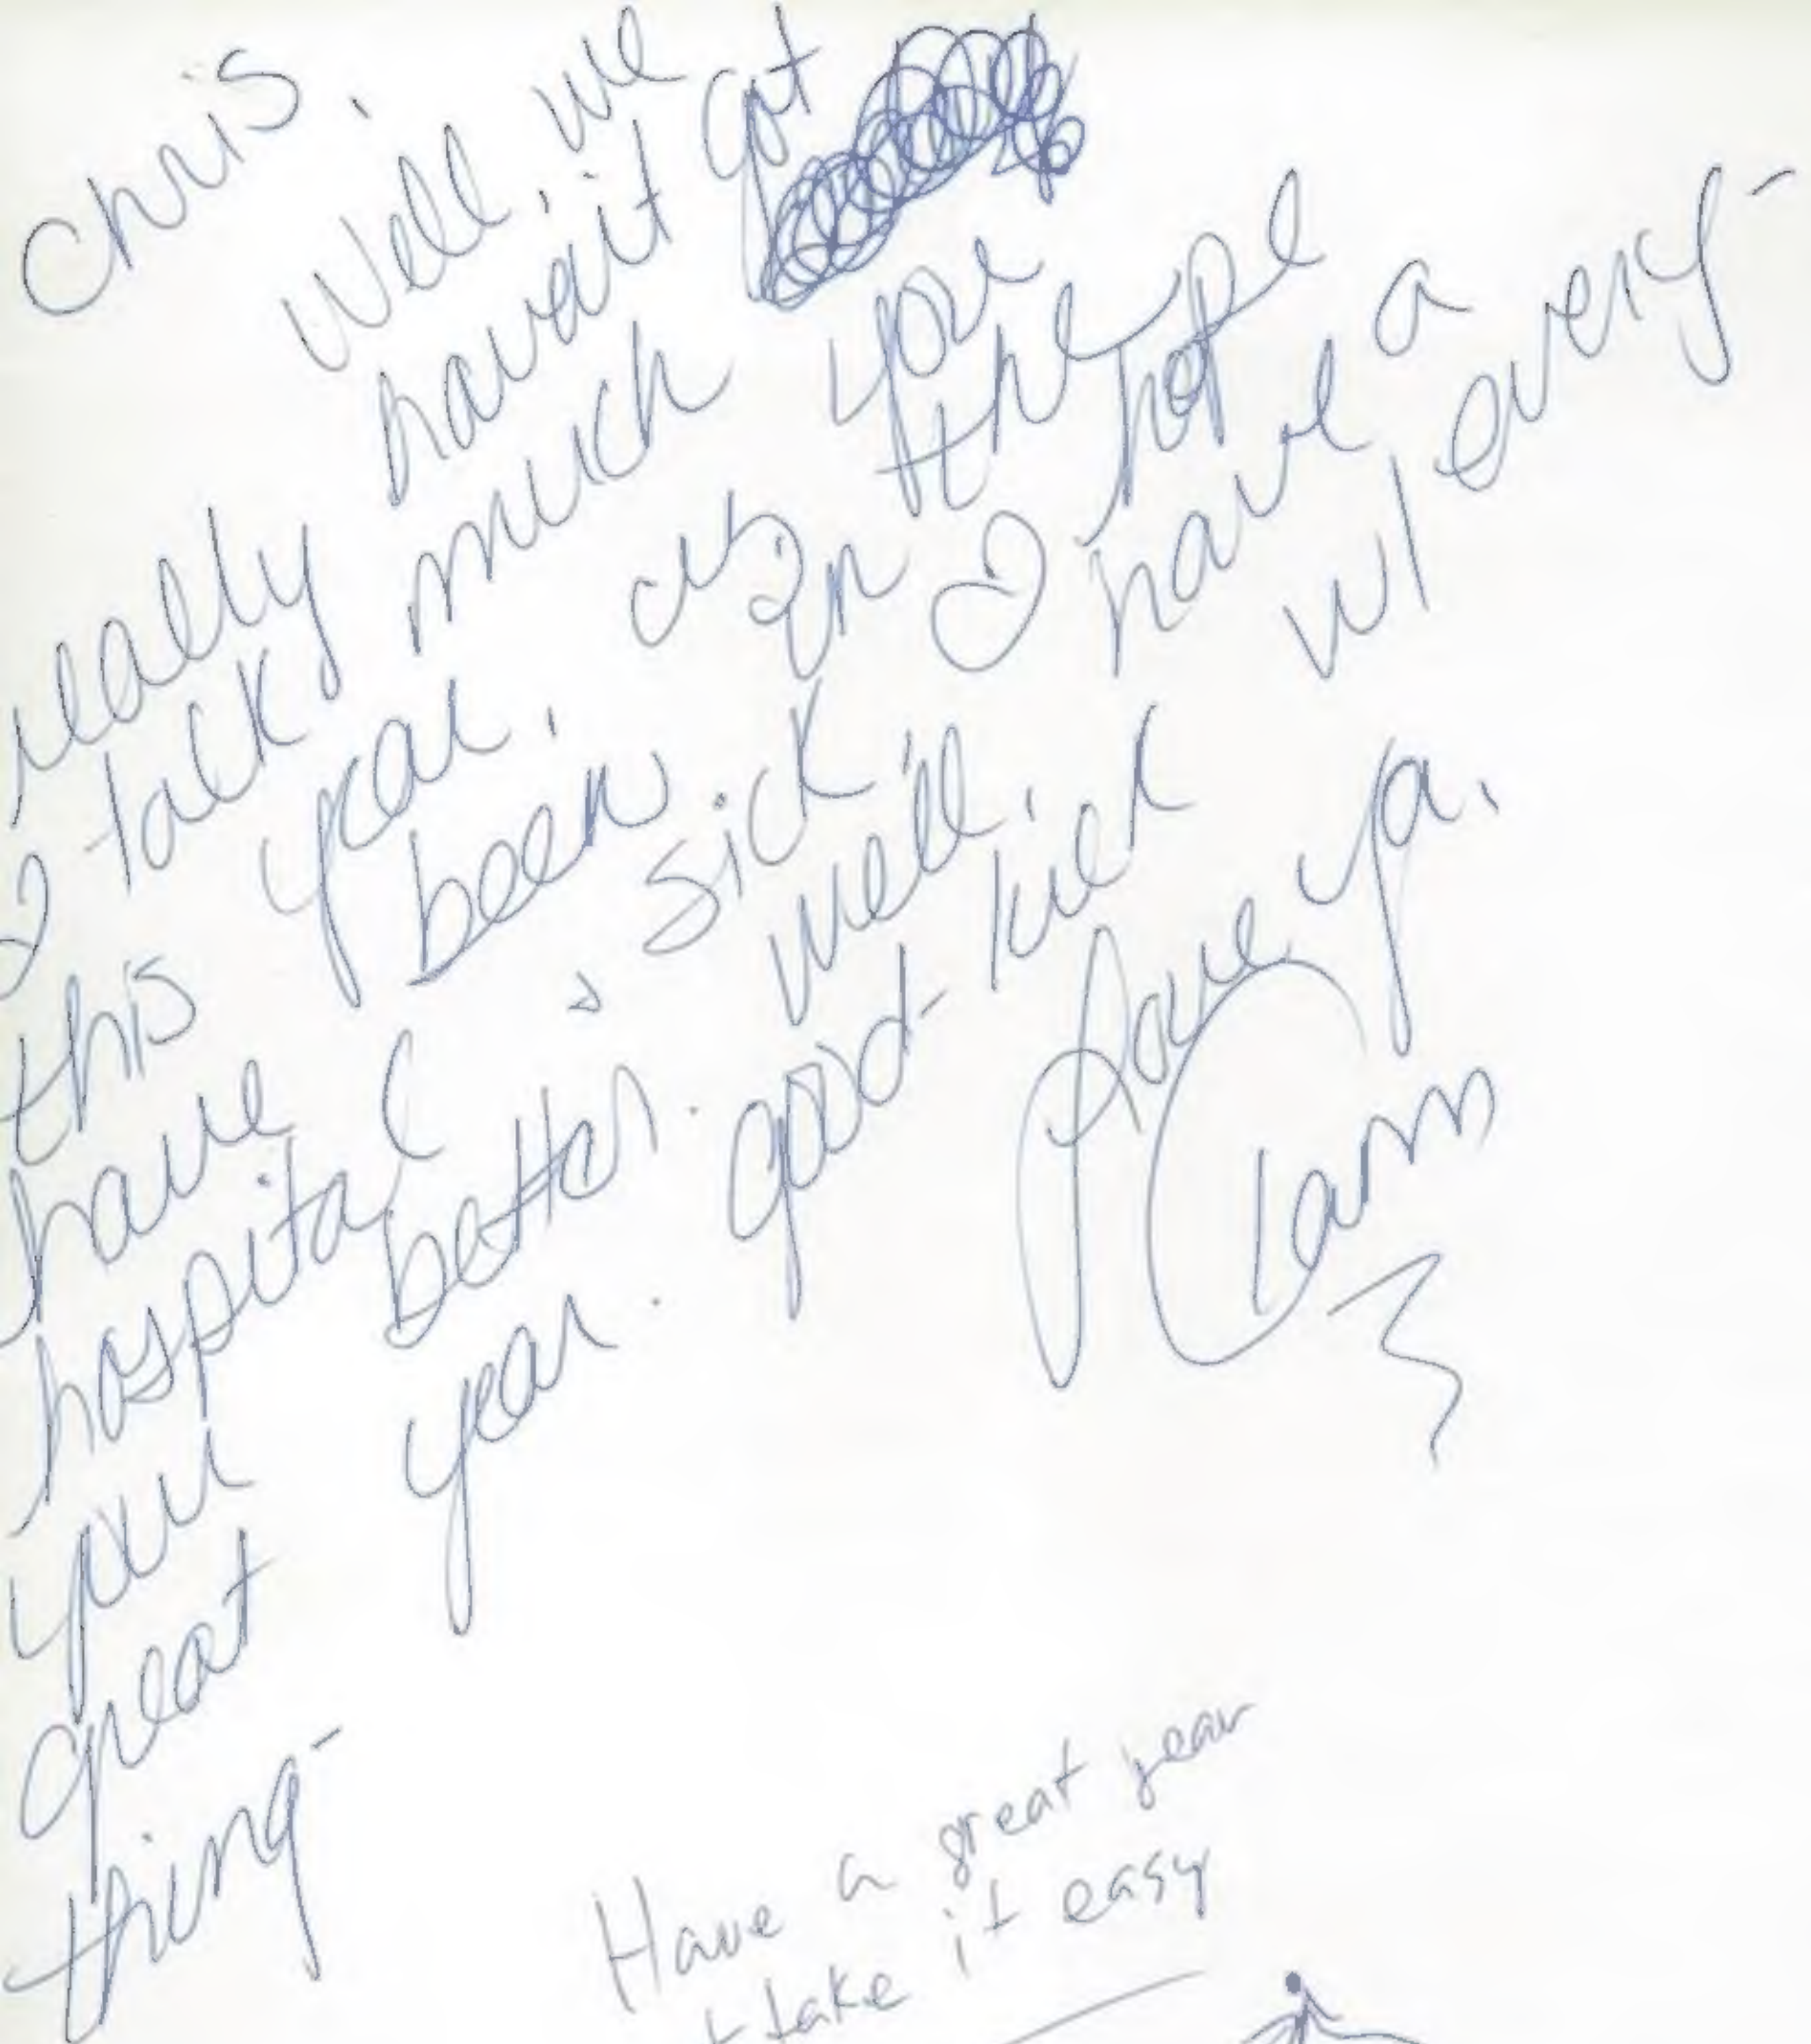 Chris,
Well, we
really haven't got
2 talk much
this year, as you
have been in the
hospital & sick I hope
your better. Well, have a
great year. good luck w/ every-
thing-
Love ya,
Have a great year
+ take it easy